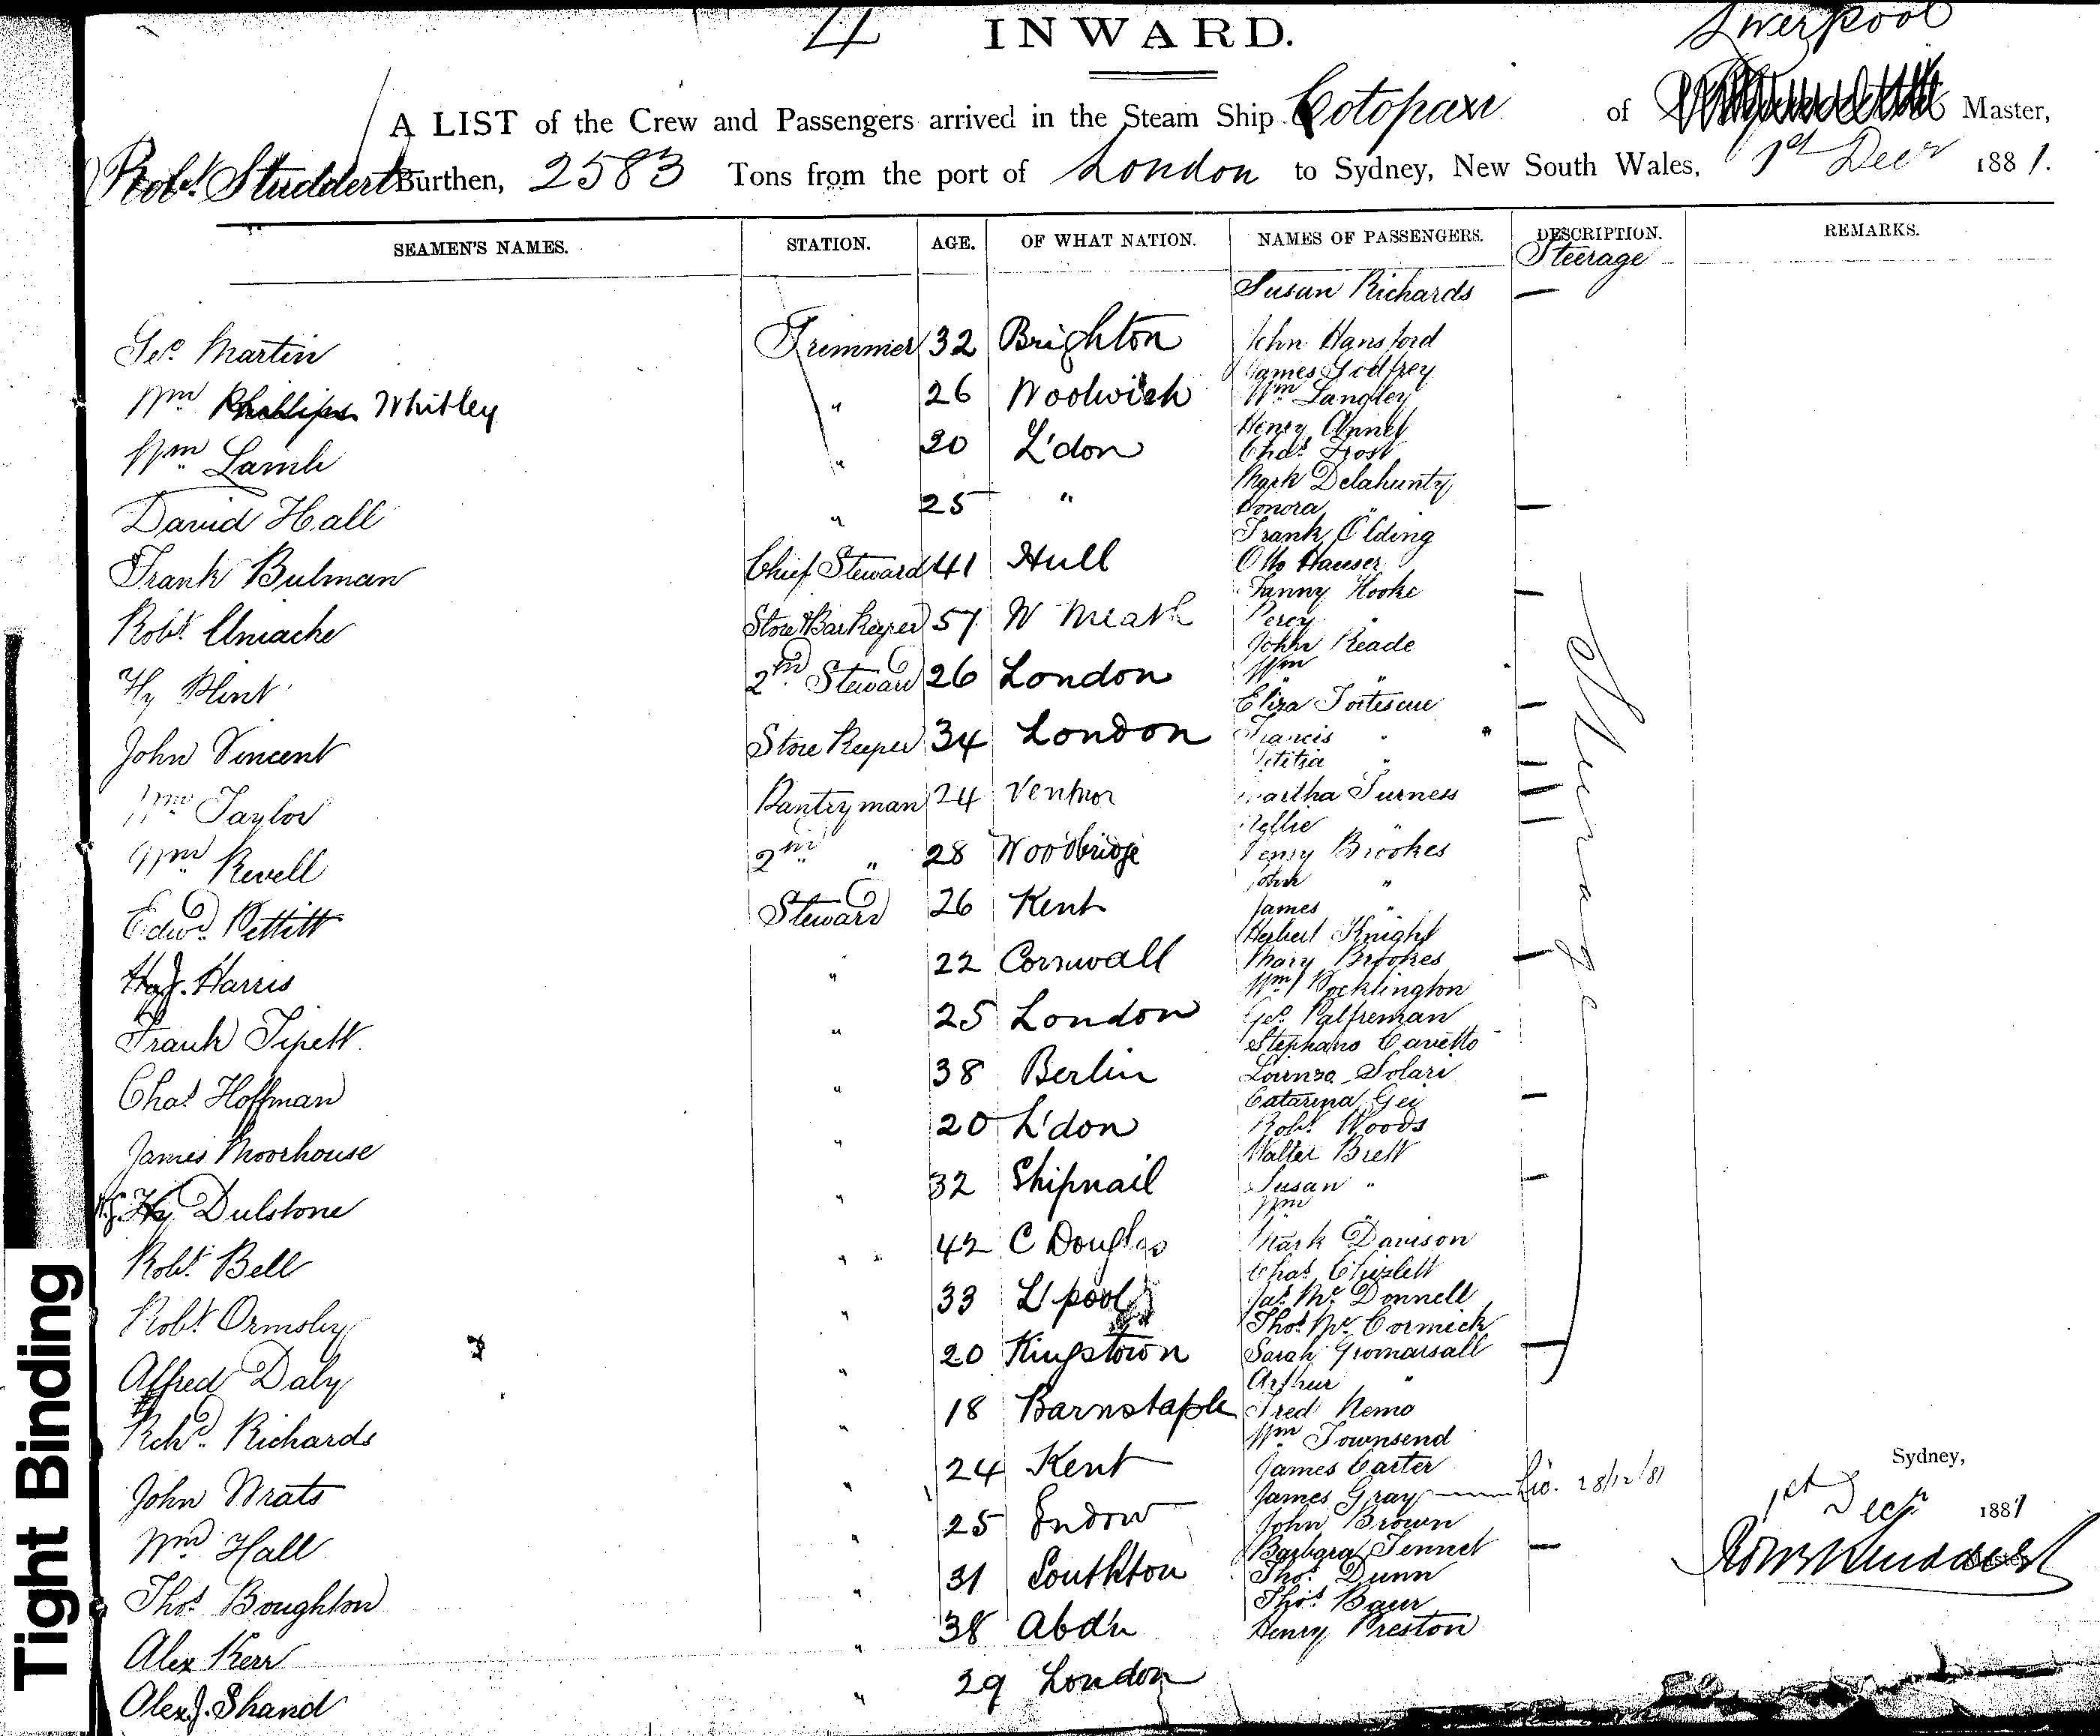 4 INWARD. Liverpool
A LIST of the Crew and Passengers arrived in the Steam Ship Cotopaxi of Master,
Robt. Studdert Burthen, 2583 Tons from the port of London to Sydney, New South Wales, 1st Decr 1881.
SEAMEN'S NAMES. STATION. AGE. OF WHAT NATION. NAMES OF PASSENGERS. DESCRIPTION. REMARKS.
Steerage
Susan Richards —
Geo. Martin Trimmer 32 Brighton John Hansford
James Godfrey
Wm Phillips Whitley " 26 Woolwich Wm Langley
Henry Annet
Wm Lamb " 20 L'don Chas. Frost
Mark Delahunty
David Hall " 25 " Honora " —
Frank Olding
Frank Bulman Chief Steward 41 Hull Otto Hauser
Fanny Hooke —
Robt. Uniacke Store & Bar Keeper 57 W Meath Percy "
John Reade
Hy Plint 2nd Steward 26 London Wm "
Eliza Fortescue —
John Vincent Store Keeper 34 London Francis "
Letitia " —
Wm Taylor Pantryman 24 Ventnor Martha Furness —
Nellie " —
Wm Revell 2nd " 28 Woodbridge Henry Brookes
John "
Edwd. Pettitt Steward 26 Kent James "
Herbert Knight
H.J. Harris " 22 Cornwall Mary Brookes —
Wm Pocklington
Frank Tipett " 25 London Geo. Palfreman
Stephano Cavetto
Chas. Hoffman " 38 Berlin Lorenzo Solari
Catarina Gei —
James Moorhouse " 20 L'don Robt. Woods
Walter Brett
Hy Dulstone " 32 Shipnail Susan " —
Wm "
Robt. Bell " 42 C Douglas Mark Davison
Chas. Chislett
Robt. Ormsby " 33 L'pool Jas. Mc Donnell
Thos. Mc Cormick
Alfred Daly " 20 Kingstown Sarah Gromarsall —
Arthur "
Richd. Richards " 18 Barnstaple Fred Nemo
Wm Townsend
John Wrats " 24 Kent James Carter
James Gray — Lic. 28/12/81
Wm Hall " 25 Endow John Brown
Barbara Tennet —
Thos. Boughton " 31 Southton Thos. Dunn
Thos. Baur
Alex Kerr " 38 Abd'n Henry Preston
Alex. J. Shand " 29 London
Steerage
Sydney,
1st Decr 1881
Robt Studdert
Master
Tight Binding